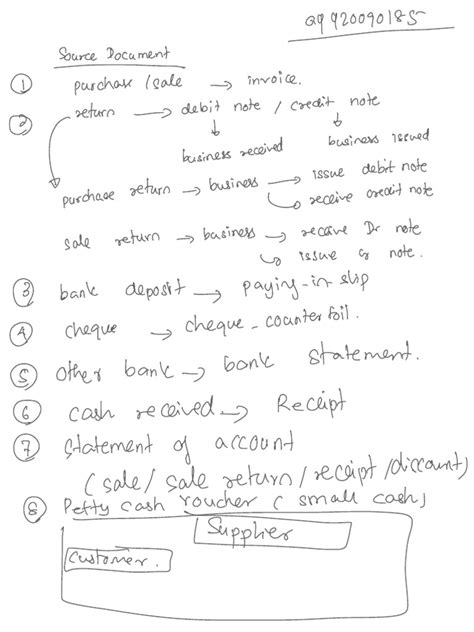 09920090185
Source Document
① purchase / sale → invoice.
② return → debit note / credit note
business received business issued
purchase return → business → issue debit note
receive credit note
sale return → business → receive Dr note
issue cr note.
③ bank deposit → paying-in slip
④ cheque → cheque-counterfoil.
⑤ other bank → bank statement.
⑥ cash received → Receipt
⑦ statement of account
(sale / sale return / receipt / discount)
⑧ Petty cash voucher (small cash)
Supplier
Customer.